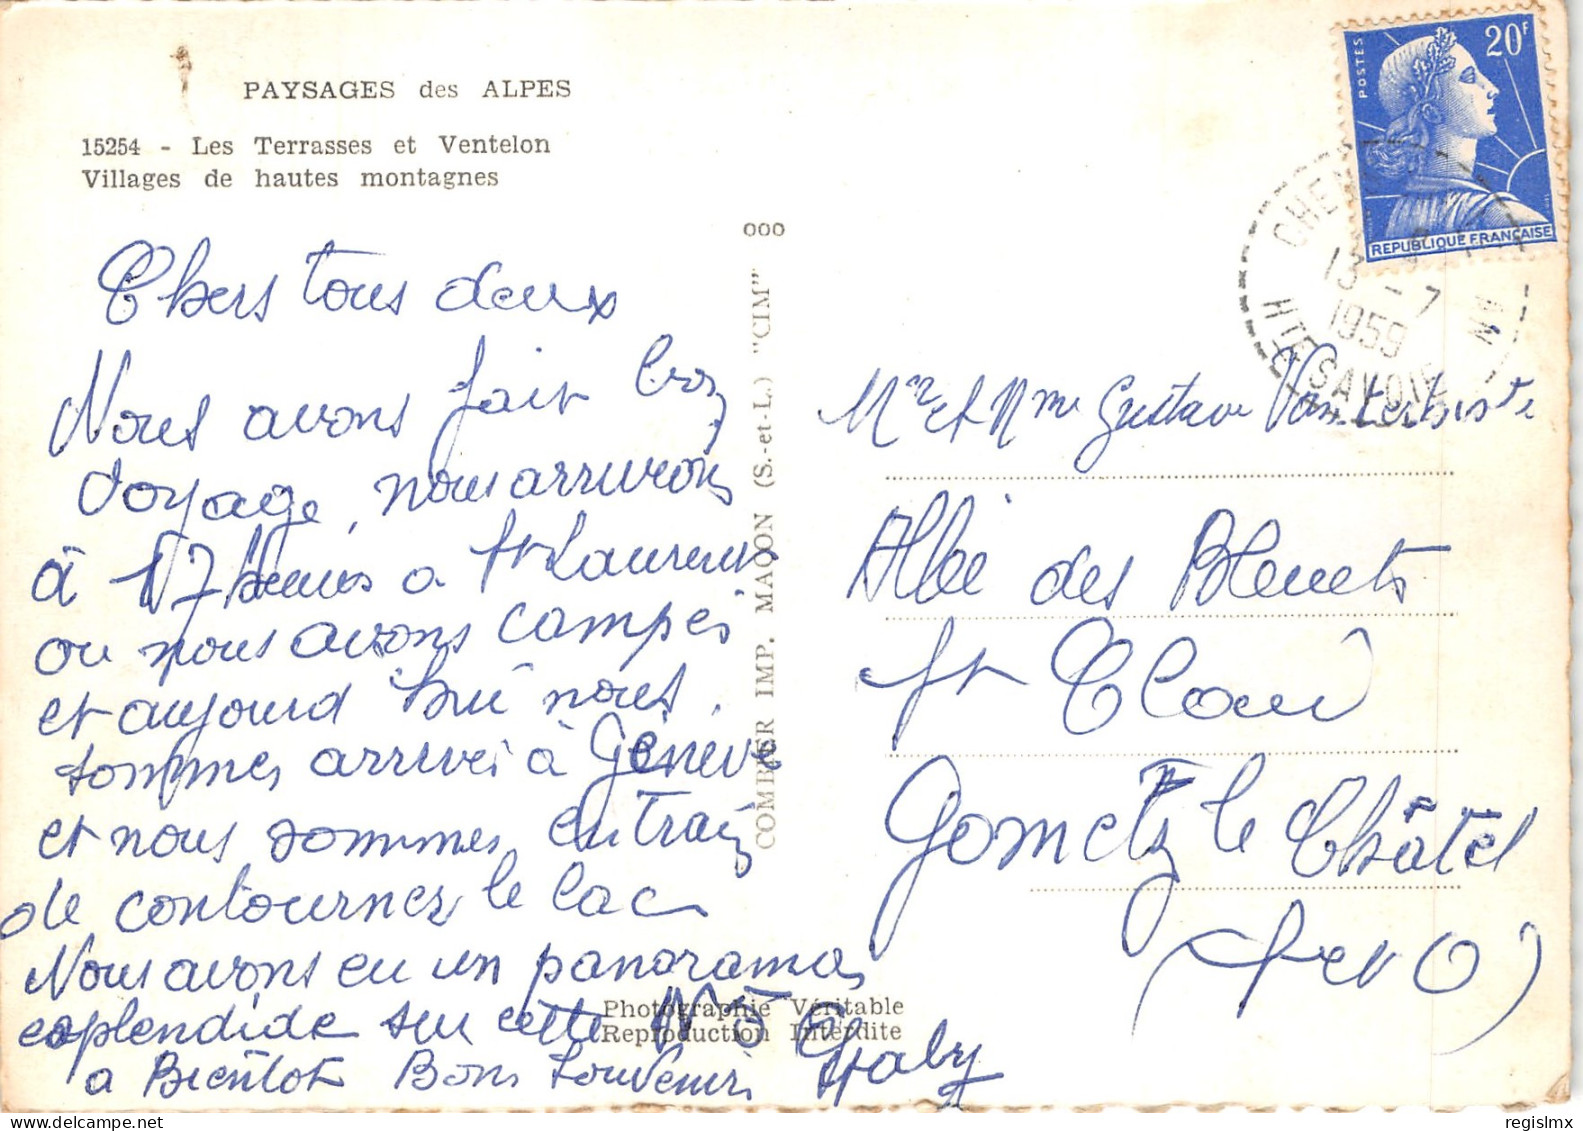 PAYSAGES des ALPES
15254 - Les Terrasses et Ventelon
Villages de hautes montagnes
Chers tous deux
Nous avons fait bon
voyage, nous arrivons
à 17 heures a St Laurent
ou nous avons campés
et aujourd'hui nous
sommes arrivés à Genève
et nous sommes en train
de contourner le lac
Nous avons eu un panorama
esplendide sur cette
a Bientôt Bons Souvenirs Gaby
Photographie Véritable
Reproduction Interdite
000
COMBIER IMP. MACON (S.-et-L.) "CIM"
POSTES
20F
REPUBLIQUE FRANÇAISE
13 - 7
1959
HTE SAVOIE
Mr et Mme Gustave
Allée des Bleuets
St Clair
Gometz le Châtel
(S et O)
delcampe.net
regislmx